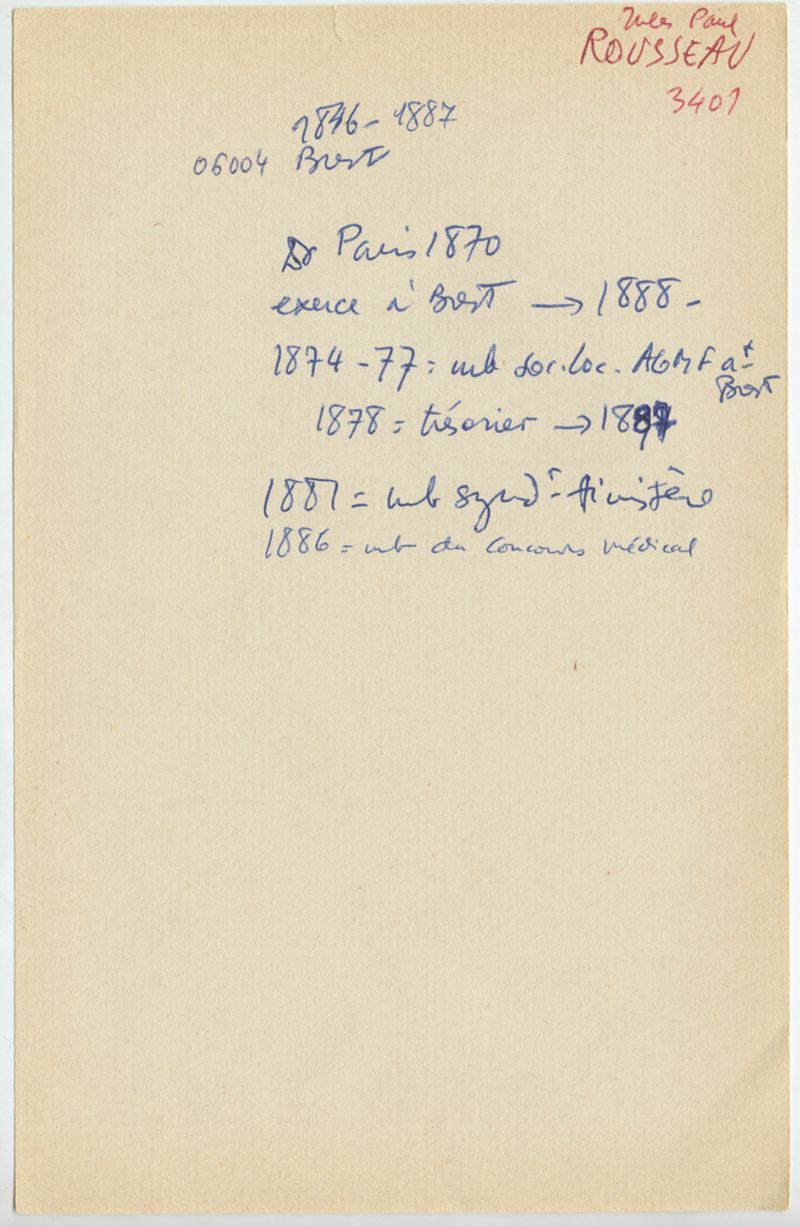 Jules Paul
ROUSSEAU
3401
1846 - 1887
06004 Brest
Dr Paris 1870
exerce à Brest → 1888 -
1874 - 77 = mb soc. loc. AGMF at
Brest
1878 = trésorier → 1887
1881 = mb syndt Finistère
1886 = mb du concours médical